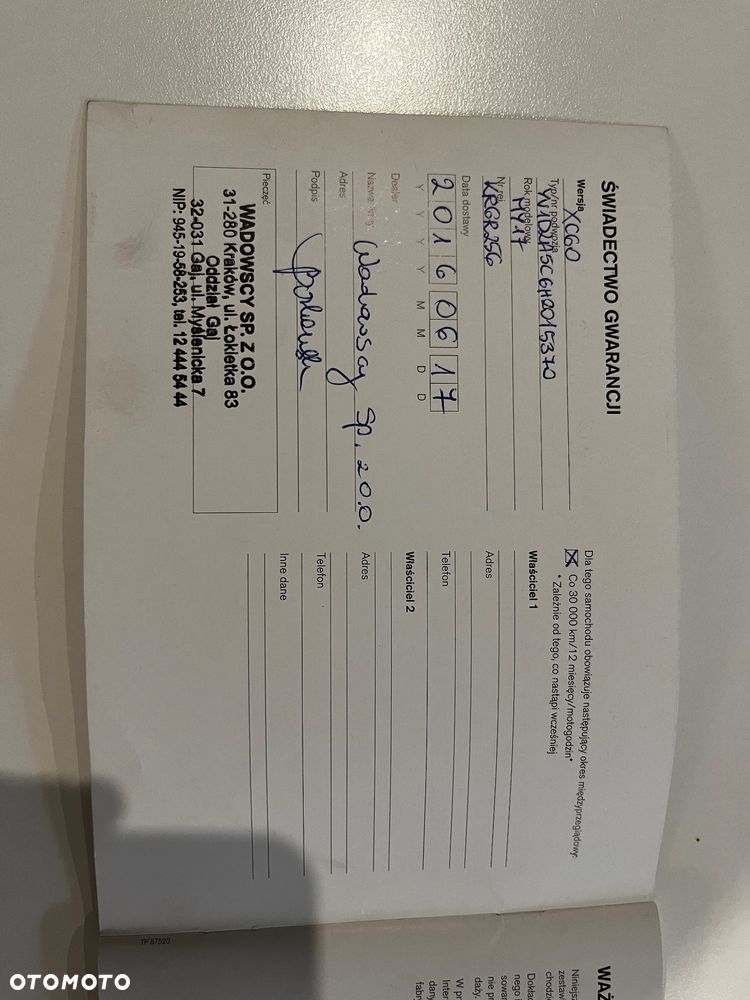 ŚWIADECTWO GWARANCJI
Wersja XC60
Typ/nr podwozia
Rok modelowy MY17
Nr rej. KRGR256
Data dostawy
2016 06 17
Y Y Y Y M M D D
Dealer
Wadowscy Sp. z o.o.
Adres
Podpis
Pieczęć
WADOWSCY SP. Z O.O.
31-280 Kraków, ul. Łokietka 83
Oddział Gaj
32-031 Gaj, ul. Myślenicka 7
NIP: 945-19-58-253, tel. 12 444 54 44
Dla tego samochodu obowiązuje następujący okres międzyprzeglądowy:
Co 30 000 km/12 miesięcy/motogodzin*
* Zależnie od tego, co nastąpi wcześniej
Właściciel 1
Adres
Telefon
Właściciel 2
Adres
Telefon
Inne dane
TP 87520
OTOMOTO